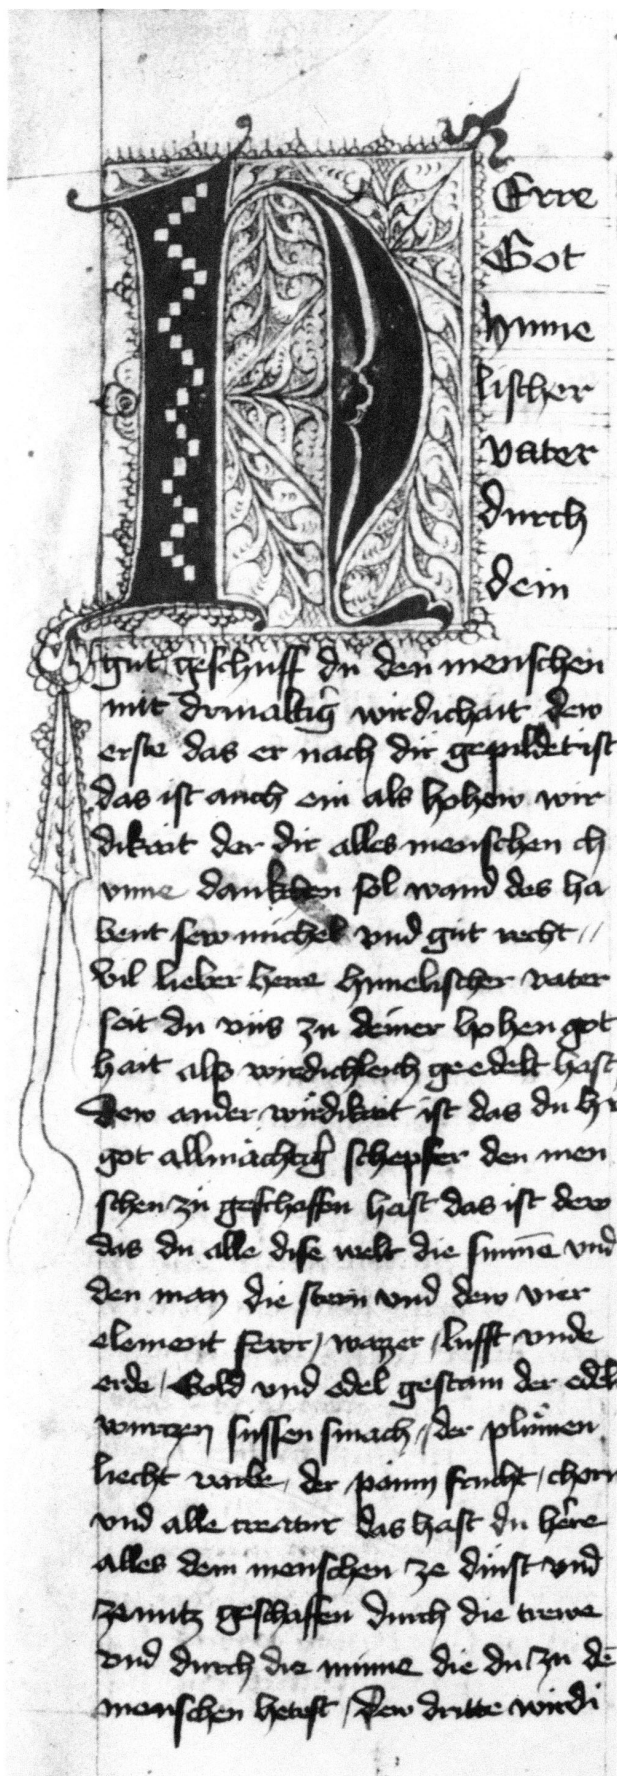 HErre
Got
hime
lischer
vater
durch
dein
gut geschuff du den menschen
mit drivaltig̃ wirdichait dew
erste das er nach dir gepildet ist
das ist auch ein als hohew wir
dikait der dir alles menschen ch
unne dankchen sol wand des ha
bent sew michel und gut recht //
Vil lieber herre himelischer vater
seit du uns zu deiner hohen got
hait also wirdichleich geedelt hast
Dew ander wirdikait ist das du hr
got allmächtig̃ schepfer den men
schen zu geschaffen hast das ist dew
das du alle dise welt die sunnē und
den man die stern und dew vier
element fewr / wazzer / lufft unde
erde / Gold und edel gestain der edel
wurczen sussen smach / der plůmen
liecht varbe / der paum frucht / chorn
und alle creatur das hast du herre
alles dem menschen ze dinst und
ze nutz geschaffen durch die trewe
und durch die minne die du zu dē
menschen hetest / Dew dritte wirdi